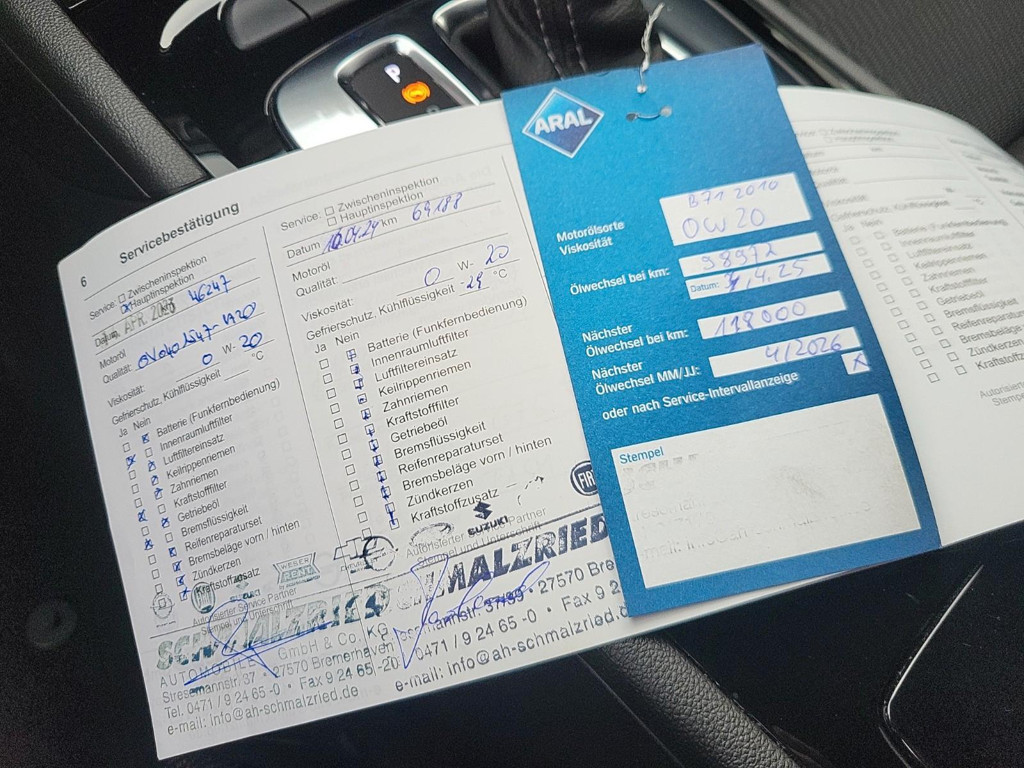 P
6
Servicebestätigung
Service: □ Zwischeninspektion
☒ Hauptinspektion
Datum APR. 2023 46247
Motoröl
Qualität:
Viskosität: 0 W- 20
Gefrierschutz, Kühlflüssigkeit °C
Ja Nein
Batterie (Funkfernbedienung)
Innenraumluftfilter
Luftfiltereinsatz
Keilrippenriemen
Zahnriemen
Kraftstofffilter
Getriebeöl
Bremsflüssigkeit
Reifenreparaturset
Bremsbeläge vorn / hinten
Zündkerzen
Kraftstoffzusatz
Autorisierter Service Partner
Stempel und Unterschrift
WEBER RENT
SCHMALZRIED
AUTOMOBILE GmbH & Co. KG
Stresemannstr. 37 • 27570 Bremerhaven
Tel. 0471 / 9 24 65 -0 • Fax 9 24 65 -20
e-mail: info@ah-schmalzried.de
Service: □ Zwischeninspektion
□ Hauptinspektion
Datum 10.04.24 km 69188
Motoröl
Qualität:
Viskosität: 0 W- 20
Gefrierschutz, Kühlflüssigkeit -28 °C
Ja Nein
Batterie (Funkfernbedienung)
Innenraumluftfilter
Luftfiltereinsatz
Keilrippenriemen
Zahnriemen
Kraftstofffilter
Getriebeöl
Bremsflüssigkeit
Reifenreparaturset
Bremsbeläge vorn / hinten
Zündkerzen
Kraftstoffzusatz
SUZUKI
FIAT
Autorisierter Service Partner
Stempel und Unterschrift
SCHMALZRIED
27570 Bre
0471 / 9 24 65 -0 • Fax 9 2
e-mail: info@ah-schmalzried.d
ARAL
Motorölsorte B71 2010
Viskosität 0W20
Ölwechsel bei km: 98972
Datum: 4.25
Nächster
Ölwechsel bei km: 118000
Nächster
Ölwechsel MM/JJ: 4/2026
oder nach Service-Intervallanzeige X
Stempel
Service: □ Zwischeninspektion
□ Hauptinspektion
Viskosität:
Gefrierschutz, Kühlflüssigkeit
Ja Nein
Batterie (Funkfernbe
Innenraumluftfilter
Luftfiltereinsatz
Keilrippenriemen
Zahnriemen
Kraftstofffilter
Getriebeöl
Bremsflüssigk
Reifenreparatu
Bremsbeläge
Zündkerzen
Kraftstoffz
Autorisiert
Stempe